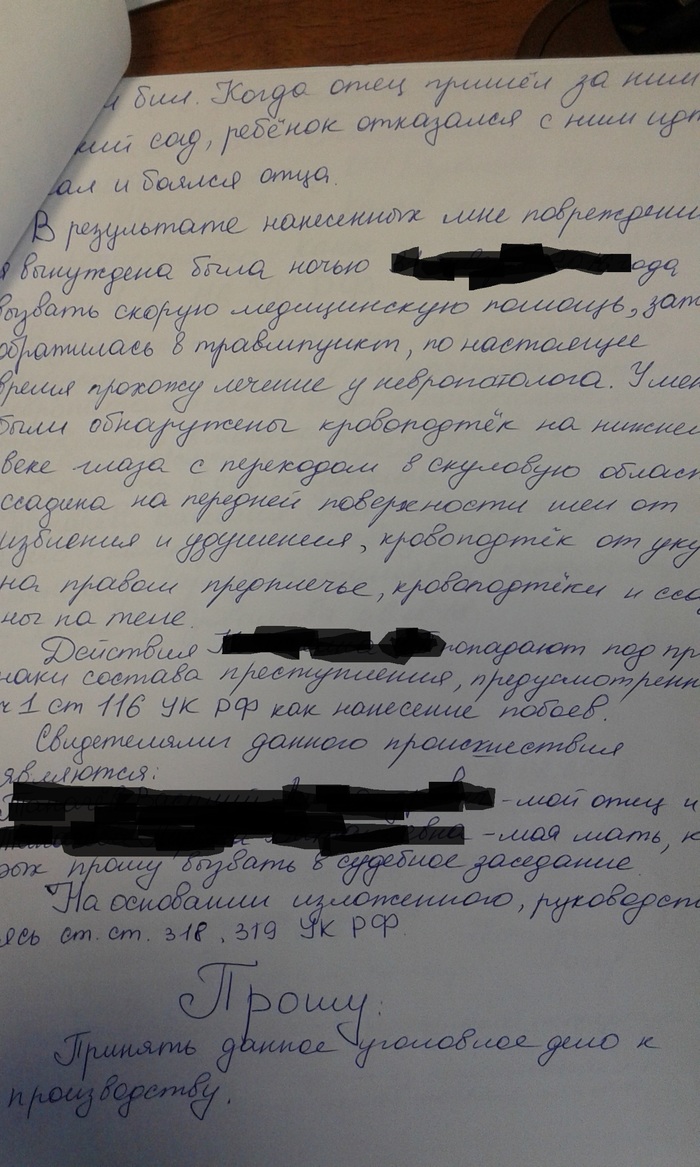 и бил. Когда отец пришёл за ним
кий сад, ребёнок отказался с ним идт
ал и боялся отца.
В результате нанесенных мне повреждени
я вынуждена была ночью ода
вызвать скорую медицинскую помощь, зат
обратилась в травмпункт, по настоящее
время прохожу лечение у невропатолога. У мен
были обнаружены кровоподтёк на нижнем
веке глаза с переходом в скуловую област
ссадина на передней поверхности шеи от
избиения и удушения, кровоподтёк от уку
на правом предплечье, кровоподтёки и сса
ны на теле.
Действия попадают под пр
наки состава преступления, предусмотренн
ч 1 ст 116 УК РФ как нанесение побоев.
Свидетелями данного происшествия
являются:
-мой отец и
-моя мать, к
рых прошу вызвать в судебное заседание
На основании изложенного, руководст
ясь ст. ст. 318, 319 УК РФ
Прошу:
Принять данное уголовное дело к
производству.